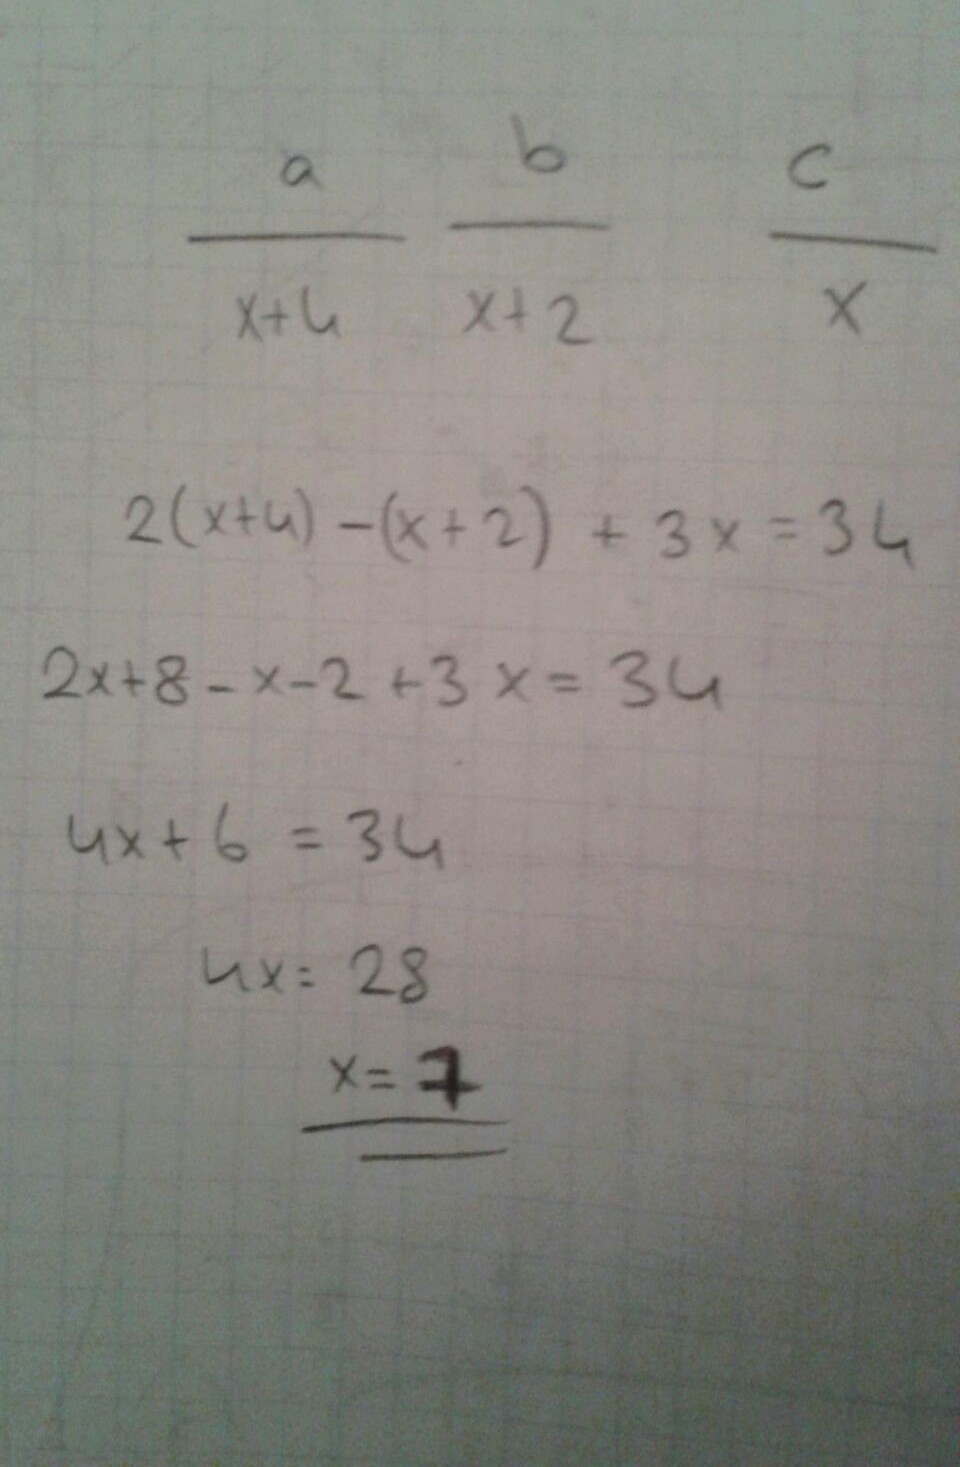 a b c
x+4 x+2 x
2(x+4) -(x+2) + 3x = 34
2x+8-x-2+3x = 34
4x+6 = 34
4x = 28
x = 7